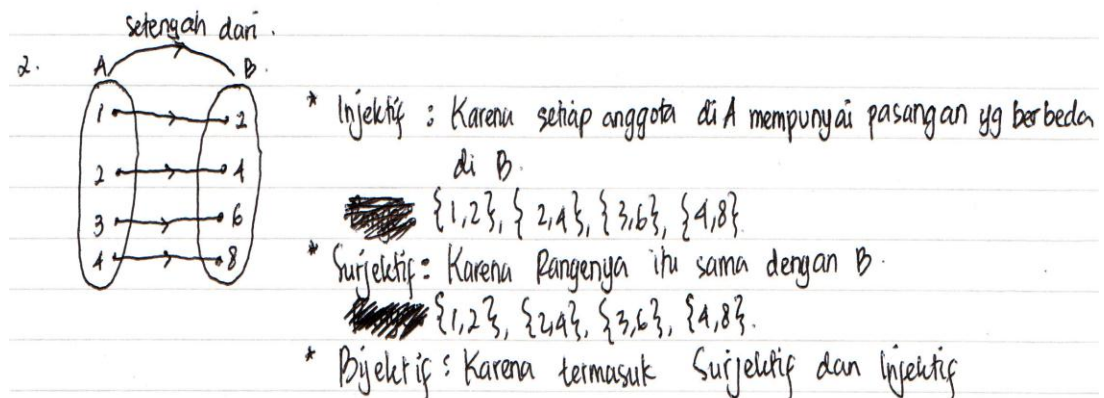 setengah dari.
2. A B.
1 2
2 4
3 6
4 8
* Injektif : Karena setiap anggota di A mempunyai pasangan yg berbeda
di B.
{1,2}, {2,4}, {3,6}, {4,8}.
* Surjektif : Karena Rangenya itu sama dengan B.
{1,2}, {2,4}, {3,6}, {4,8}.
* Bijektif : Karena termasuk Surjektif dan Injektif